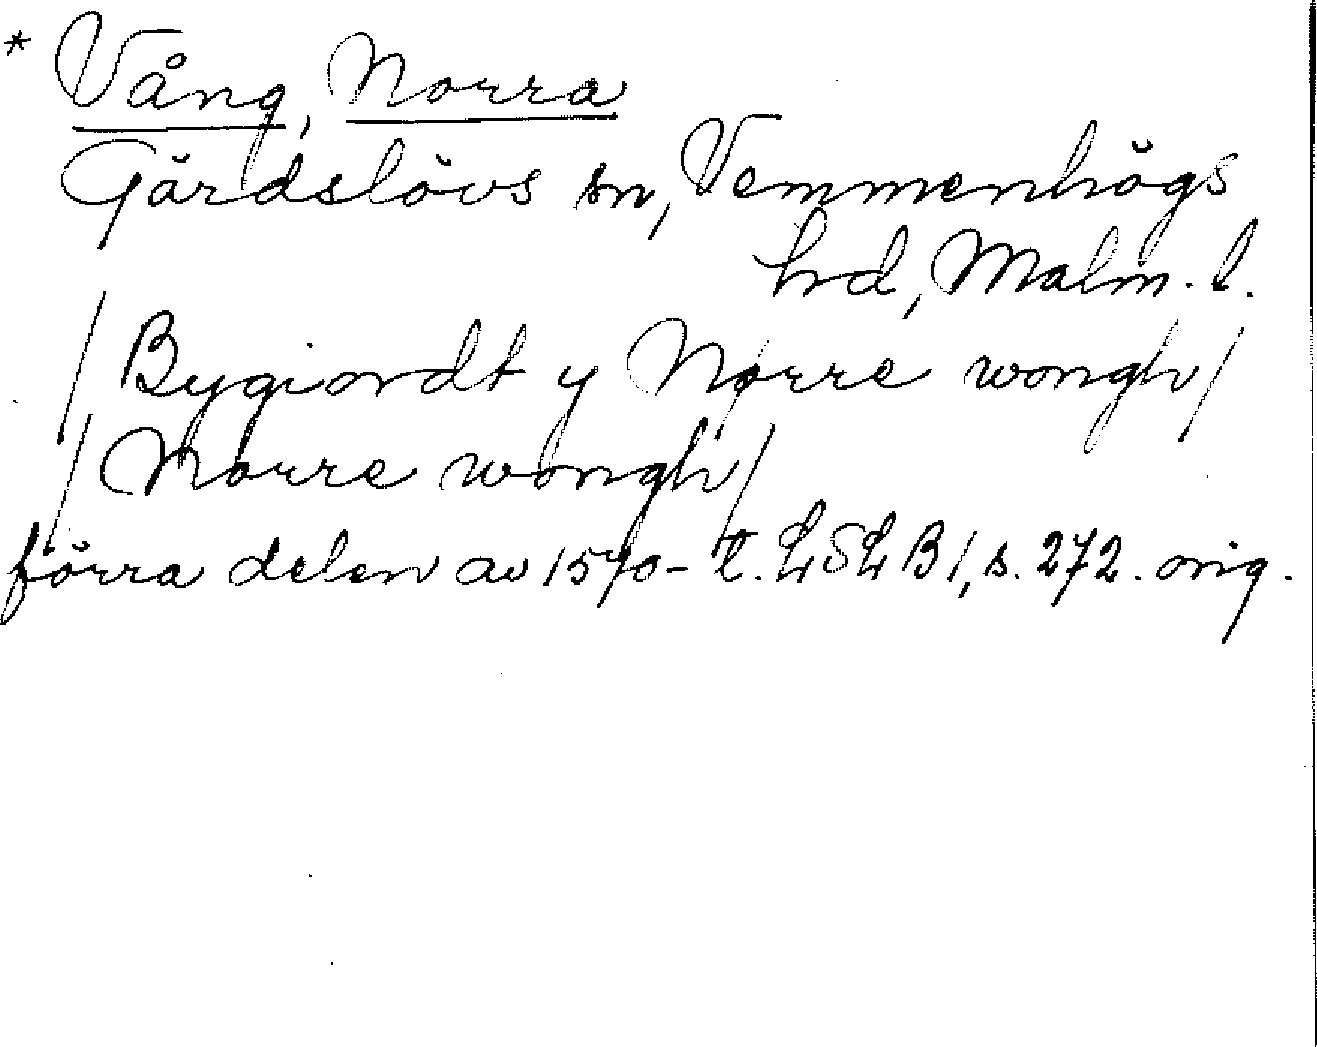 * Vång, Norra
Gärdslövs sn, Vemmenhögs
hrd, Malm. l.
/Bygiordt y Nørre wongh/
/Nørre wongh/
förra delen av 1570-t. LSLB1, s. 272. orig.